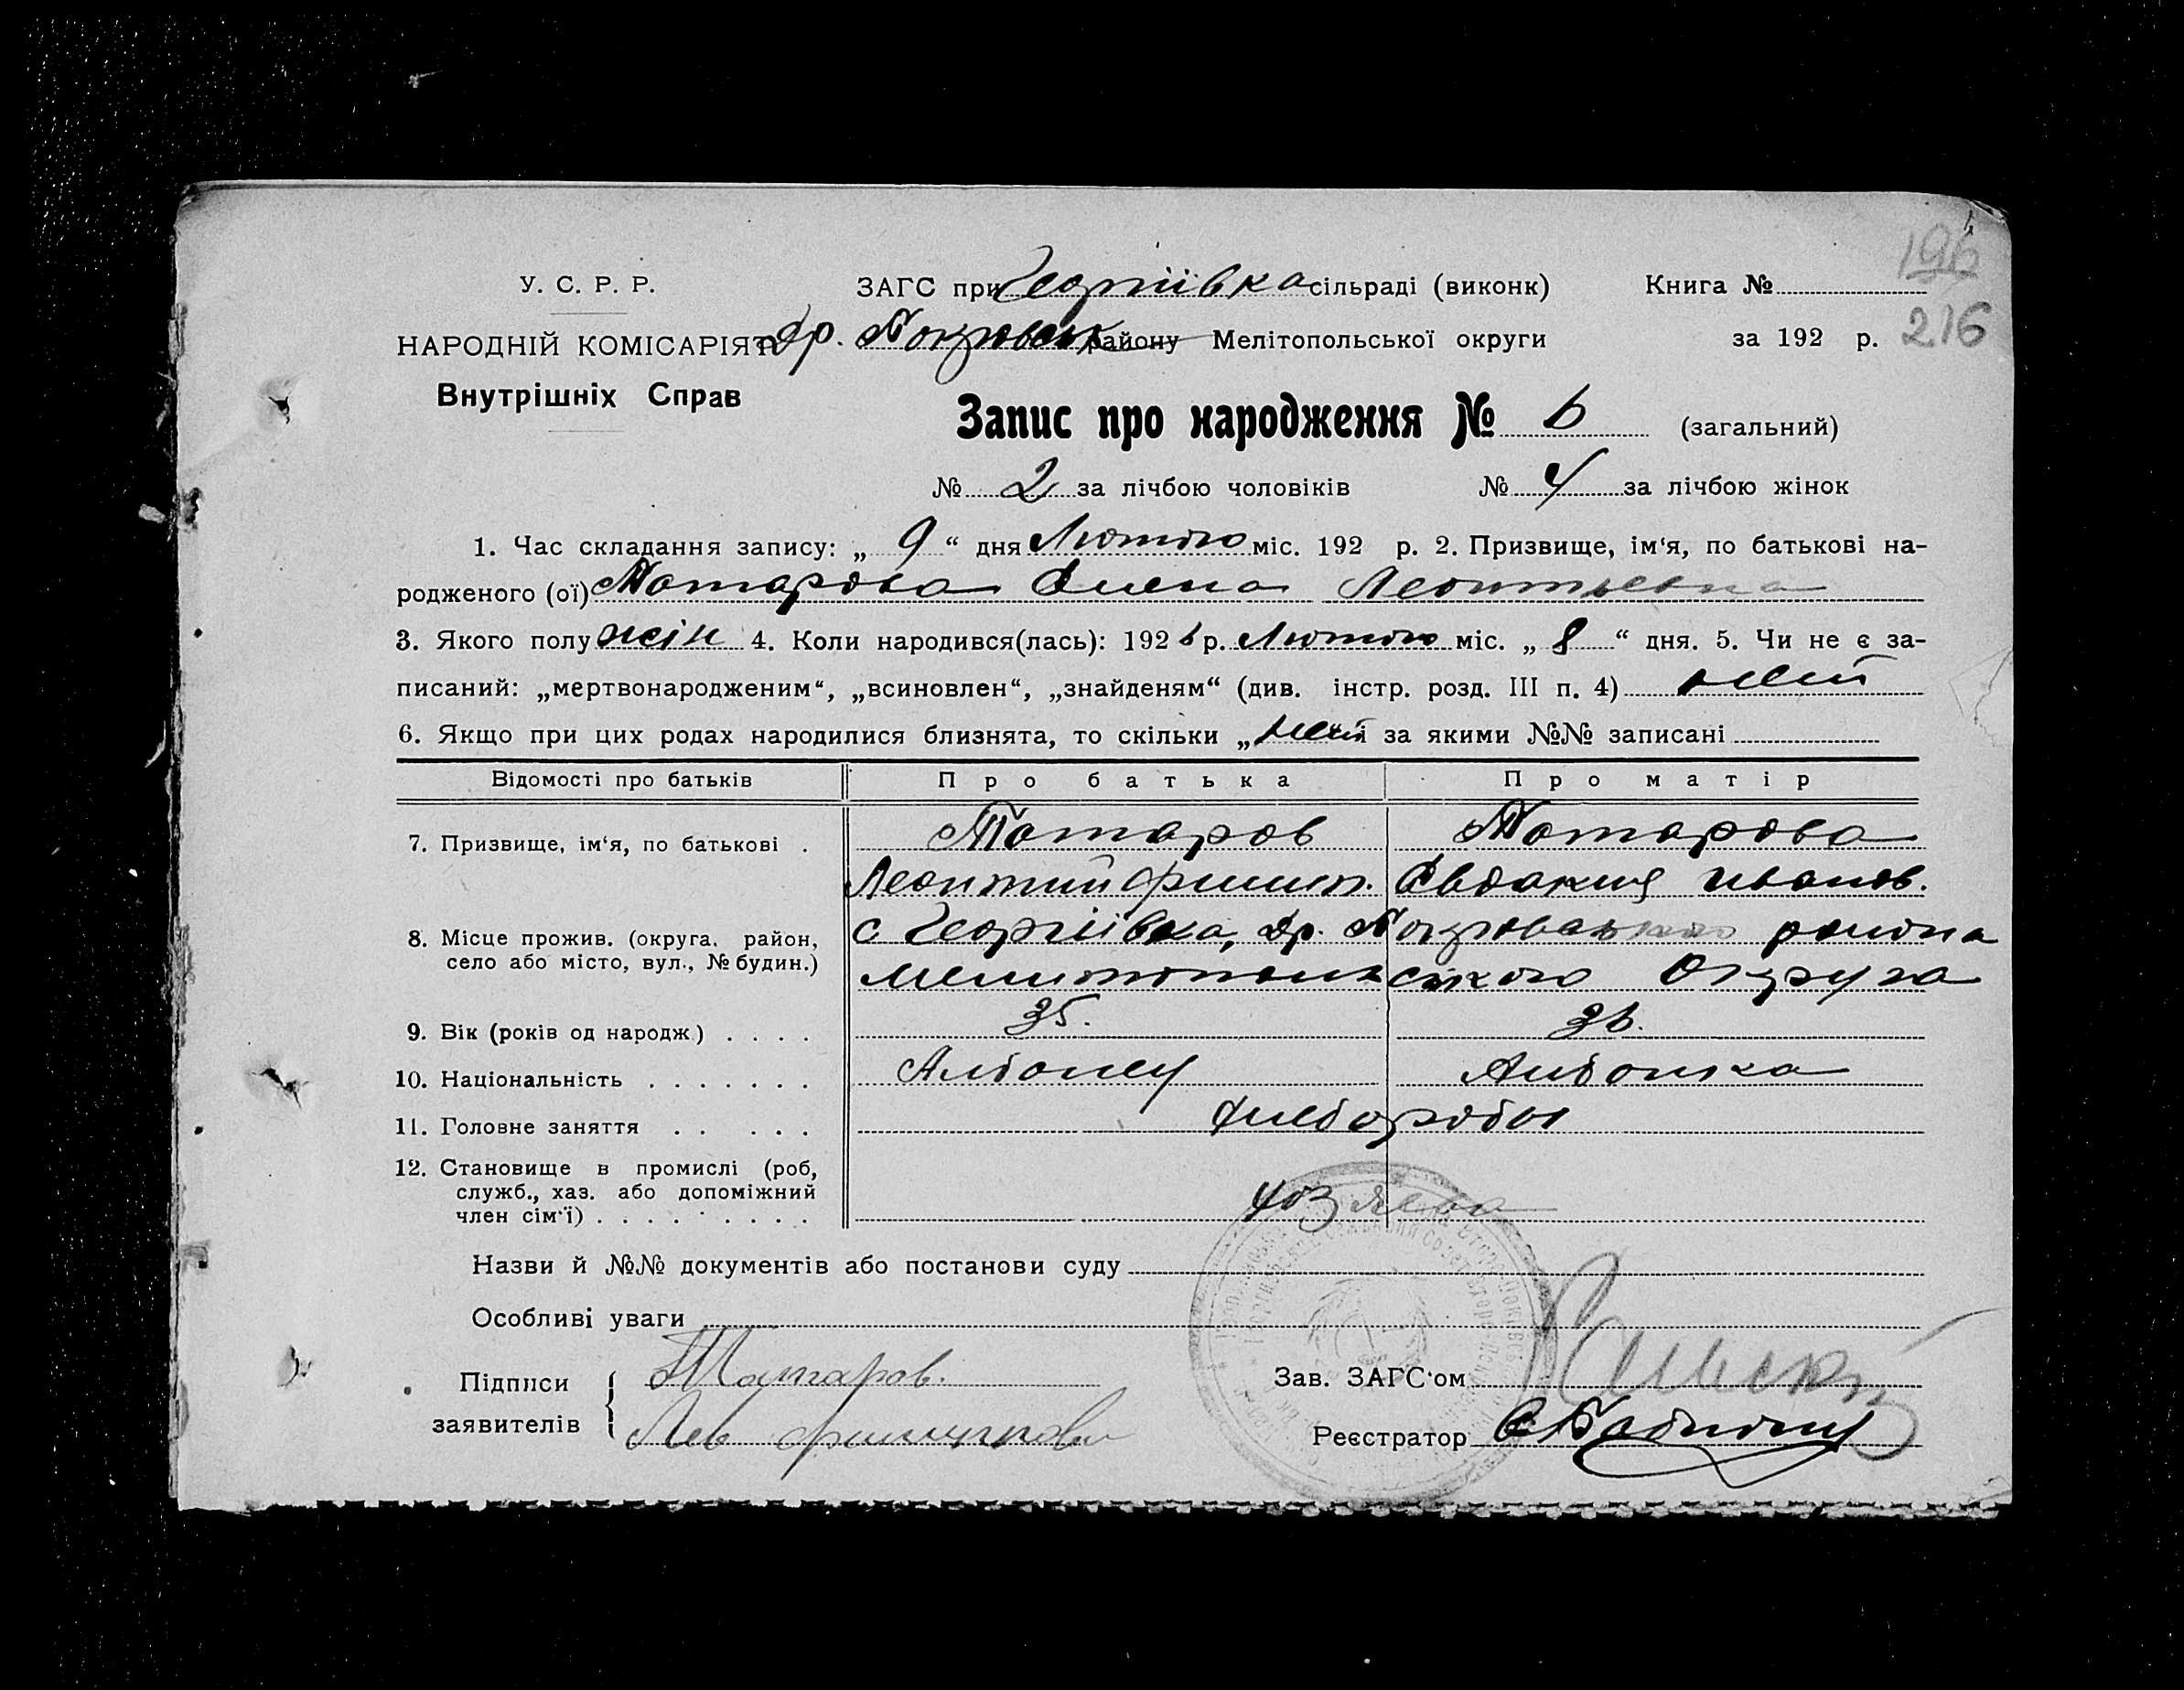 196
У. С. Р. Р. ЗАГС при Георгіївка сільраді (виконк) Книга №
216
НАРОДНІЙ КОМІСАРІЯТ Др. Покровськ району Мелітопольської округи за 192 р.
Внутрішніх Справ
Запис про народження № 6 (загальний)
№ 2 за лічбою чоловіків № 4 за лічбою жінок
1. Час складання запису: „ 9 “ дня Лютого міс. 192 р. 2. Призвище, ім‘я, по батькові на-
родженого (ої) Татарова Елена Леонтьевна
3. Якого полу жін 4. Коли народився(лась): 192 6 р. Лютого міс. „ 8 “ дня. 5. Чи не є за-
писаний: „мертвонародженим“, „всиновлен“, „знайденям“ (див. інстр. розд. III п. 4)
6. Якщо при цих родах народилися близнята, то скільки „ за якими №№ записані
Відомості про батьків Про батька Про матір
7. Призвище, ім‘я, по батькові . Татаров Татарова
Леонтий Филип. Евдокия Иванов.
8. Місце прожив. (округа, район, с Георгіївка, Др. Покровського района
село або місто, вул., № будин.) Мелитопольського Округа
9. Вік (років од народж.) . . . . 35. 36.
10. Національність . . . . . . . Албанец Албанка
11. Головне заняття . . . . . Хлебороби
12. Становище в промислі (роб,
служб., хаз. або допоміжний
член сім‘ї) . . . . . . . . . Хозяева
Назви й №№ документів або постанови суду
Особливі уваги
Підписи Татаров. Зав. ЗАГС‘ом
заявителів Лев Филиппови Реєстратор